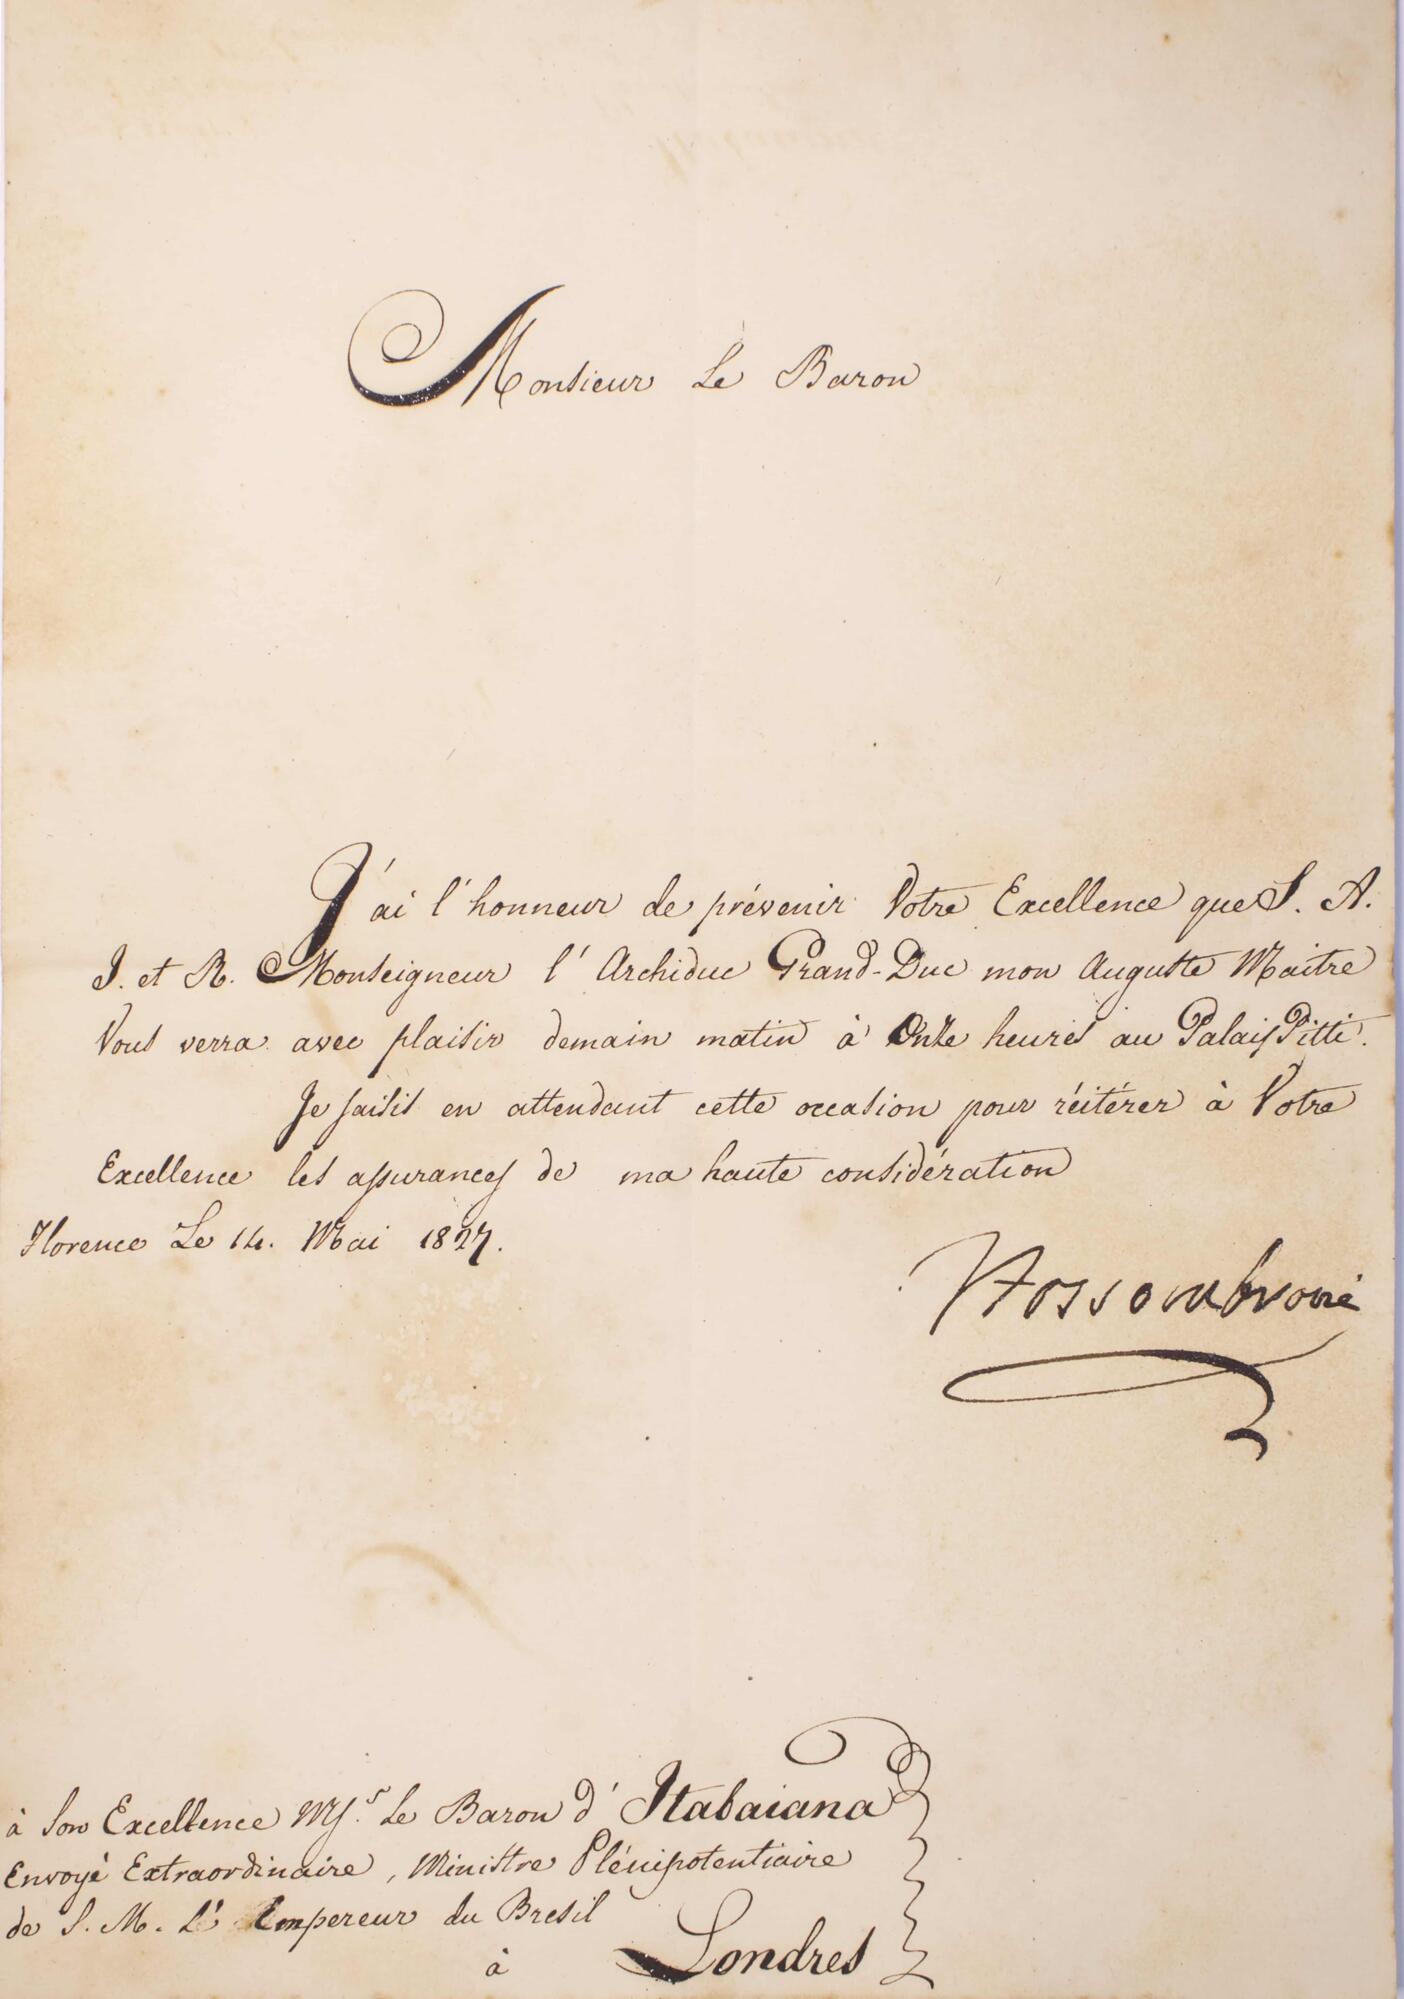 Monsieur Le Baron
J'ai l'honneur de prévenir Votre Excellence que S. A.
I. et R. Monseigneur l'Archiduc Grand-Duc mon Auguste Maitre
Vous verra avec plaisir demain matin à Onze heures au Palais Pitti.
Je saisis en attendant cette occasion pour réitérer à Votre
Excellence les assurances de ma haute considération
Florence Le 14. Mai 1827.
Fossombroni
à Son Excellence Mr. Le Baron d'Itabaiana
Envoyé Extraordinaire, Ministre Plénipotentiaire
de S. M. L'Empereur du Bresil
à Londres